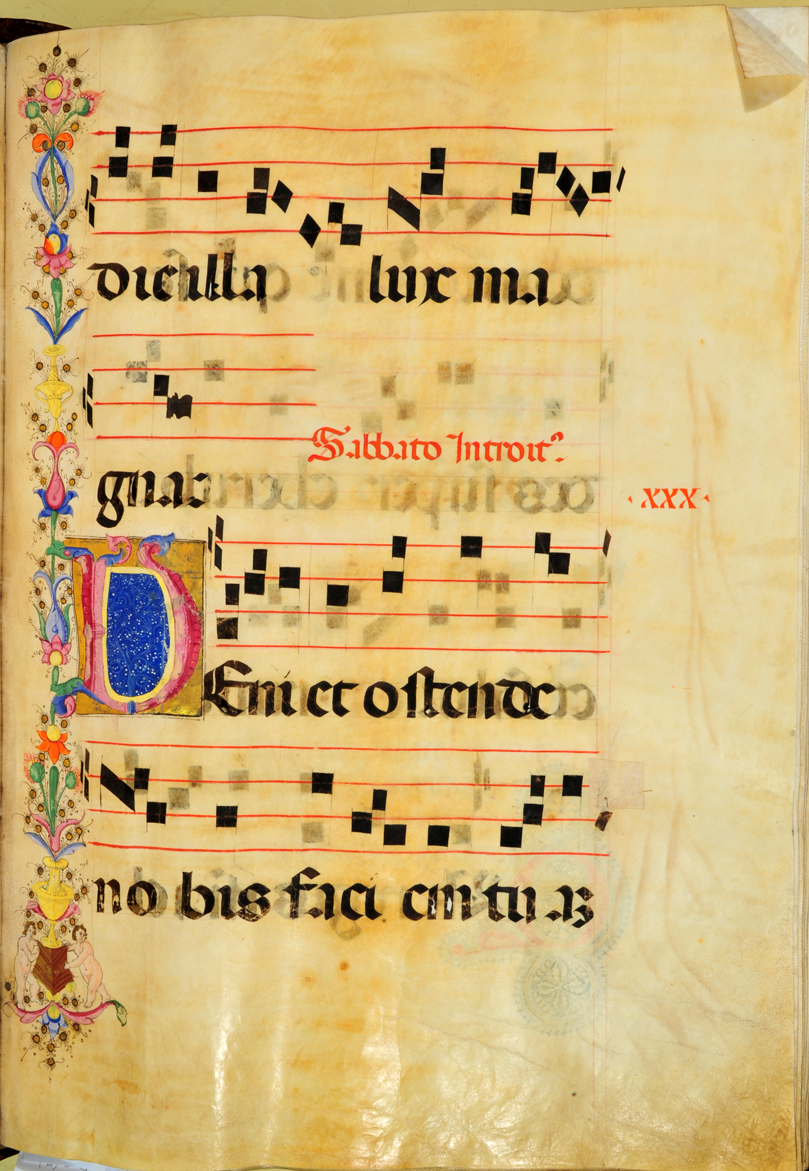 die illa lux ma
gna
Sabbato Introit⁹.
· xxx ·
VEni et ostende
nobis faci em tuaʒ